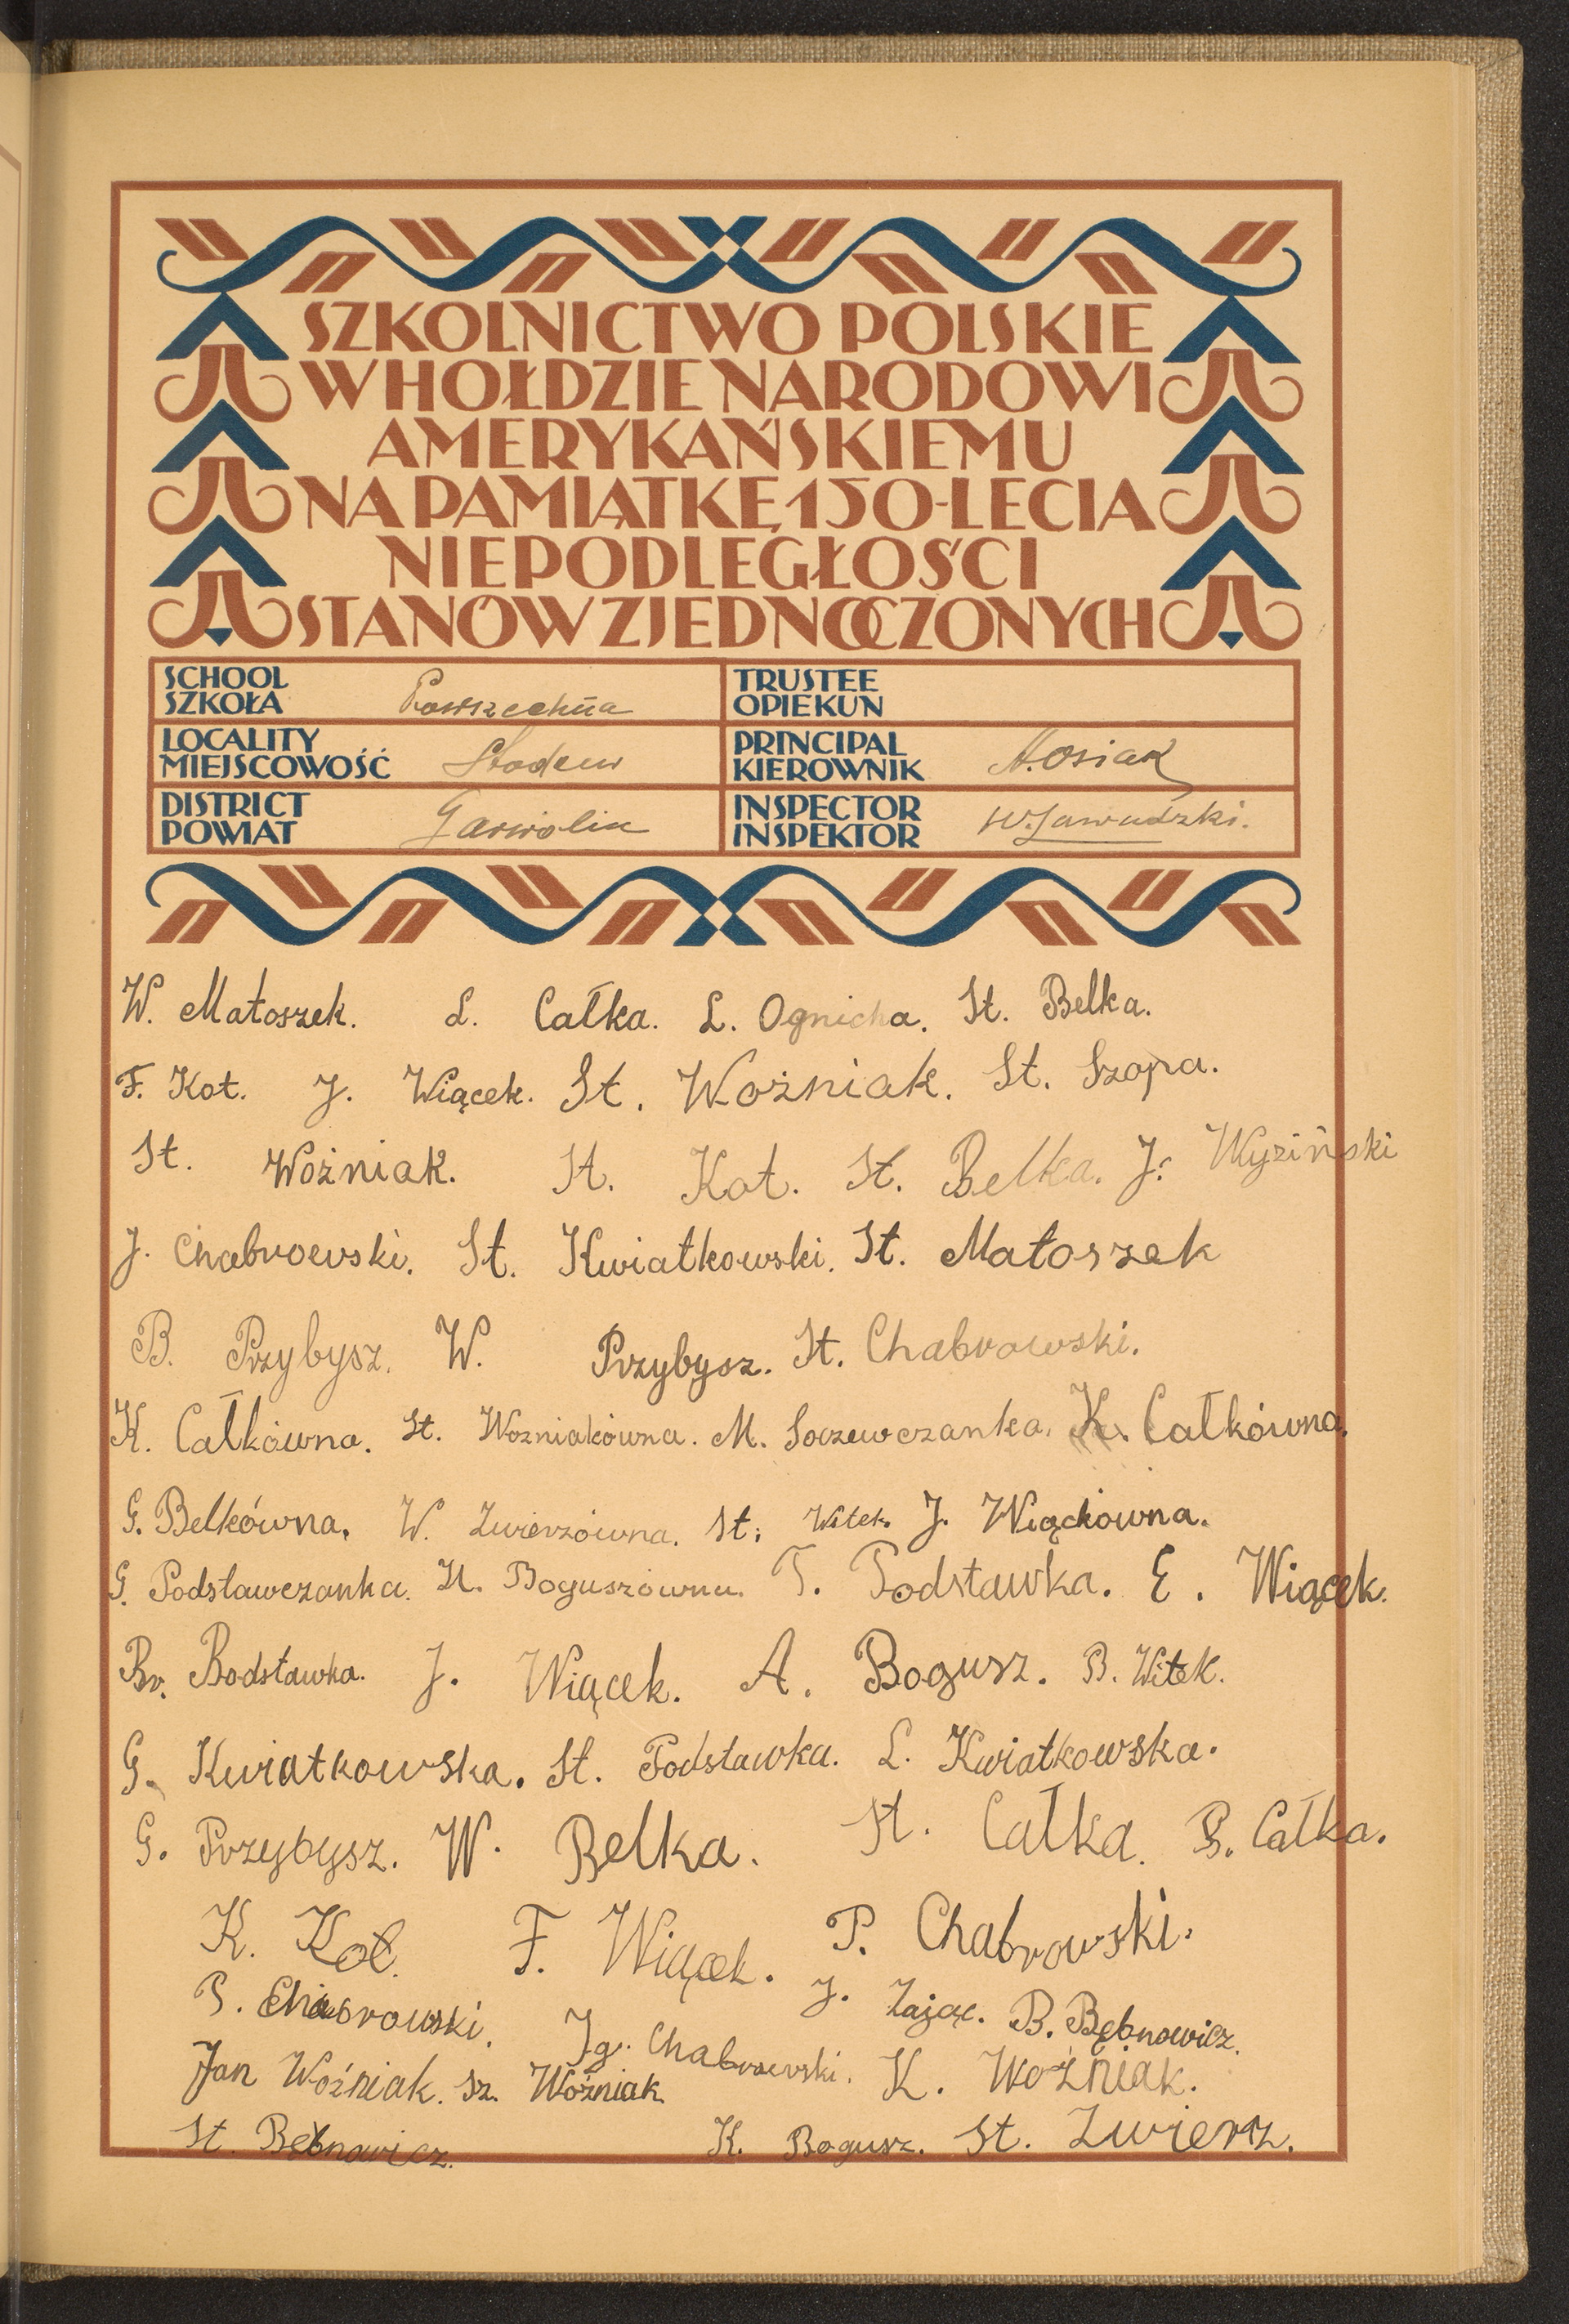 SZKOLNICTWO POLSKIE
W HOŁDZIE NARODOWI
AMERYKAŃSKIEMU
NA PAMIĄTKĘ 150-LECIA
NIEPODLEGŁOŚCI
STANÓW ZJEDNOCZONYCH
SCHOOL
SZKOŁA Powszechna
TRUSTEE
OPIEKUN
LOCALITY
MIEJSCOWOŚĆ Stodzew
PRINCIPAL
KIEROWNIK A. Osiak
DISTRICT
POWIAT Garwolin
INSPECTOR
INSPEKTOR W. Zawadzki.
W. Matoszek. L. Całka. L. Ognicha. St. Belka.
F. Kot. J. Wiącek. St. Woźniak. St. Szopa.
St. Woźniak. St. Kot. St. Belka. J. Wyziński
J. Chabrowski. St. Kwiatkowski. St. Matoszek
B. Przybysz. W. Przybysz. St. Chabrowski.
K. Całkówna. St. Wozniakówna. M. Soczewczanka. K. Całkówna.
G. Belkówna. W. Zwierzówna. St. Witek. J. Wiąckówna.
G. Podstawczanka. H. Boguszówna. T. Podstawka. E. Wiącek.
Br. Podstawka. J. Wiącek. A. Bogusz. B. Witek.
G. Kwiatkowska. St. Podstawka. L. Kwiatkowska.
G. Przybysz. W. Belka. St. Całka. B. Całka.
K. Kot. F. Wiącek. P. Chabrowski.
P. Chabrowski. Ig. Chabrowski. J. Zając. B. Bębnowicz.
Jan Woźniak. Sz. Woźniak K. Woźniak.
St. Bębnowicz. K. Bogusz. St. Zwierz.